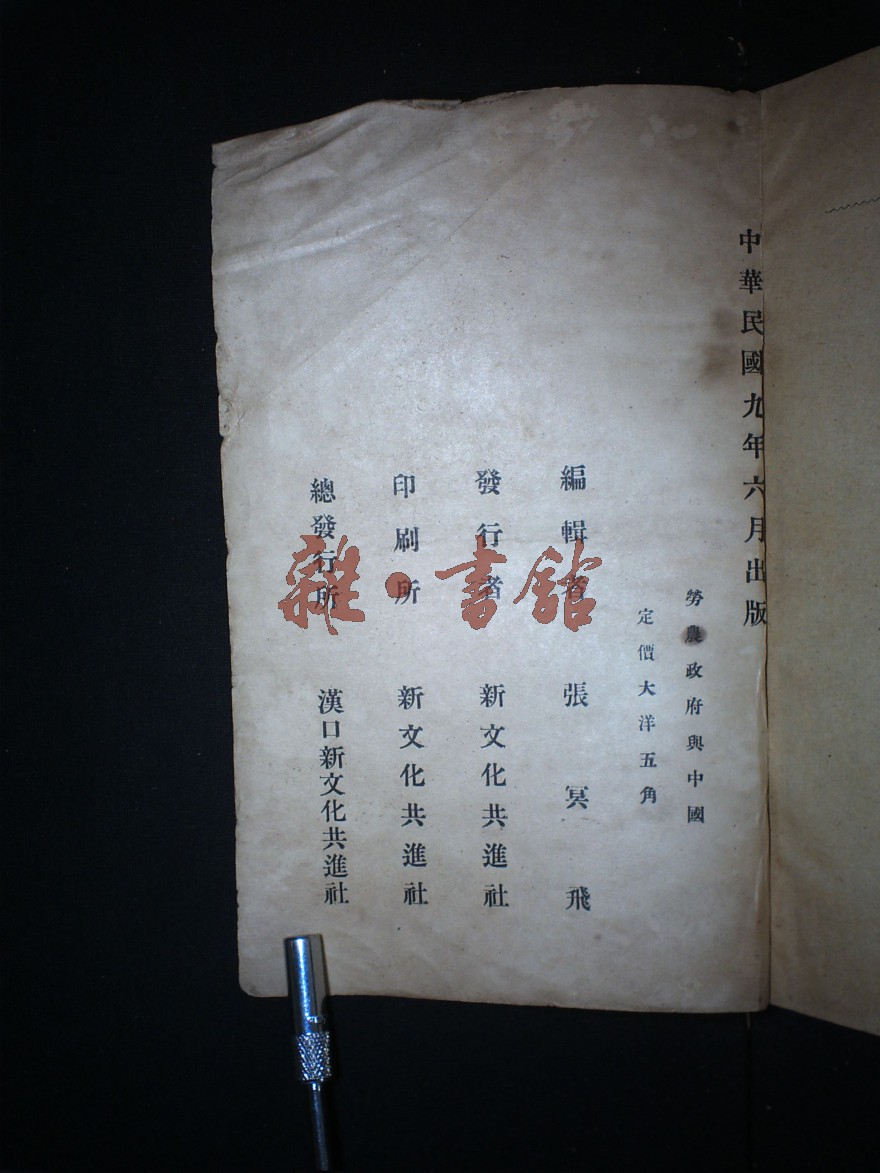 中華民國九年六月出版
勞農政府與中國
定價大洋五角
編輯者 張冥飛
發行者 新文化共進社
印刷所 新文化共進社
總發行所 漢口新文化共進社
雜·書館